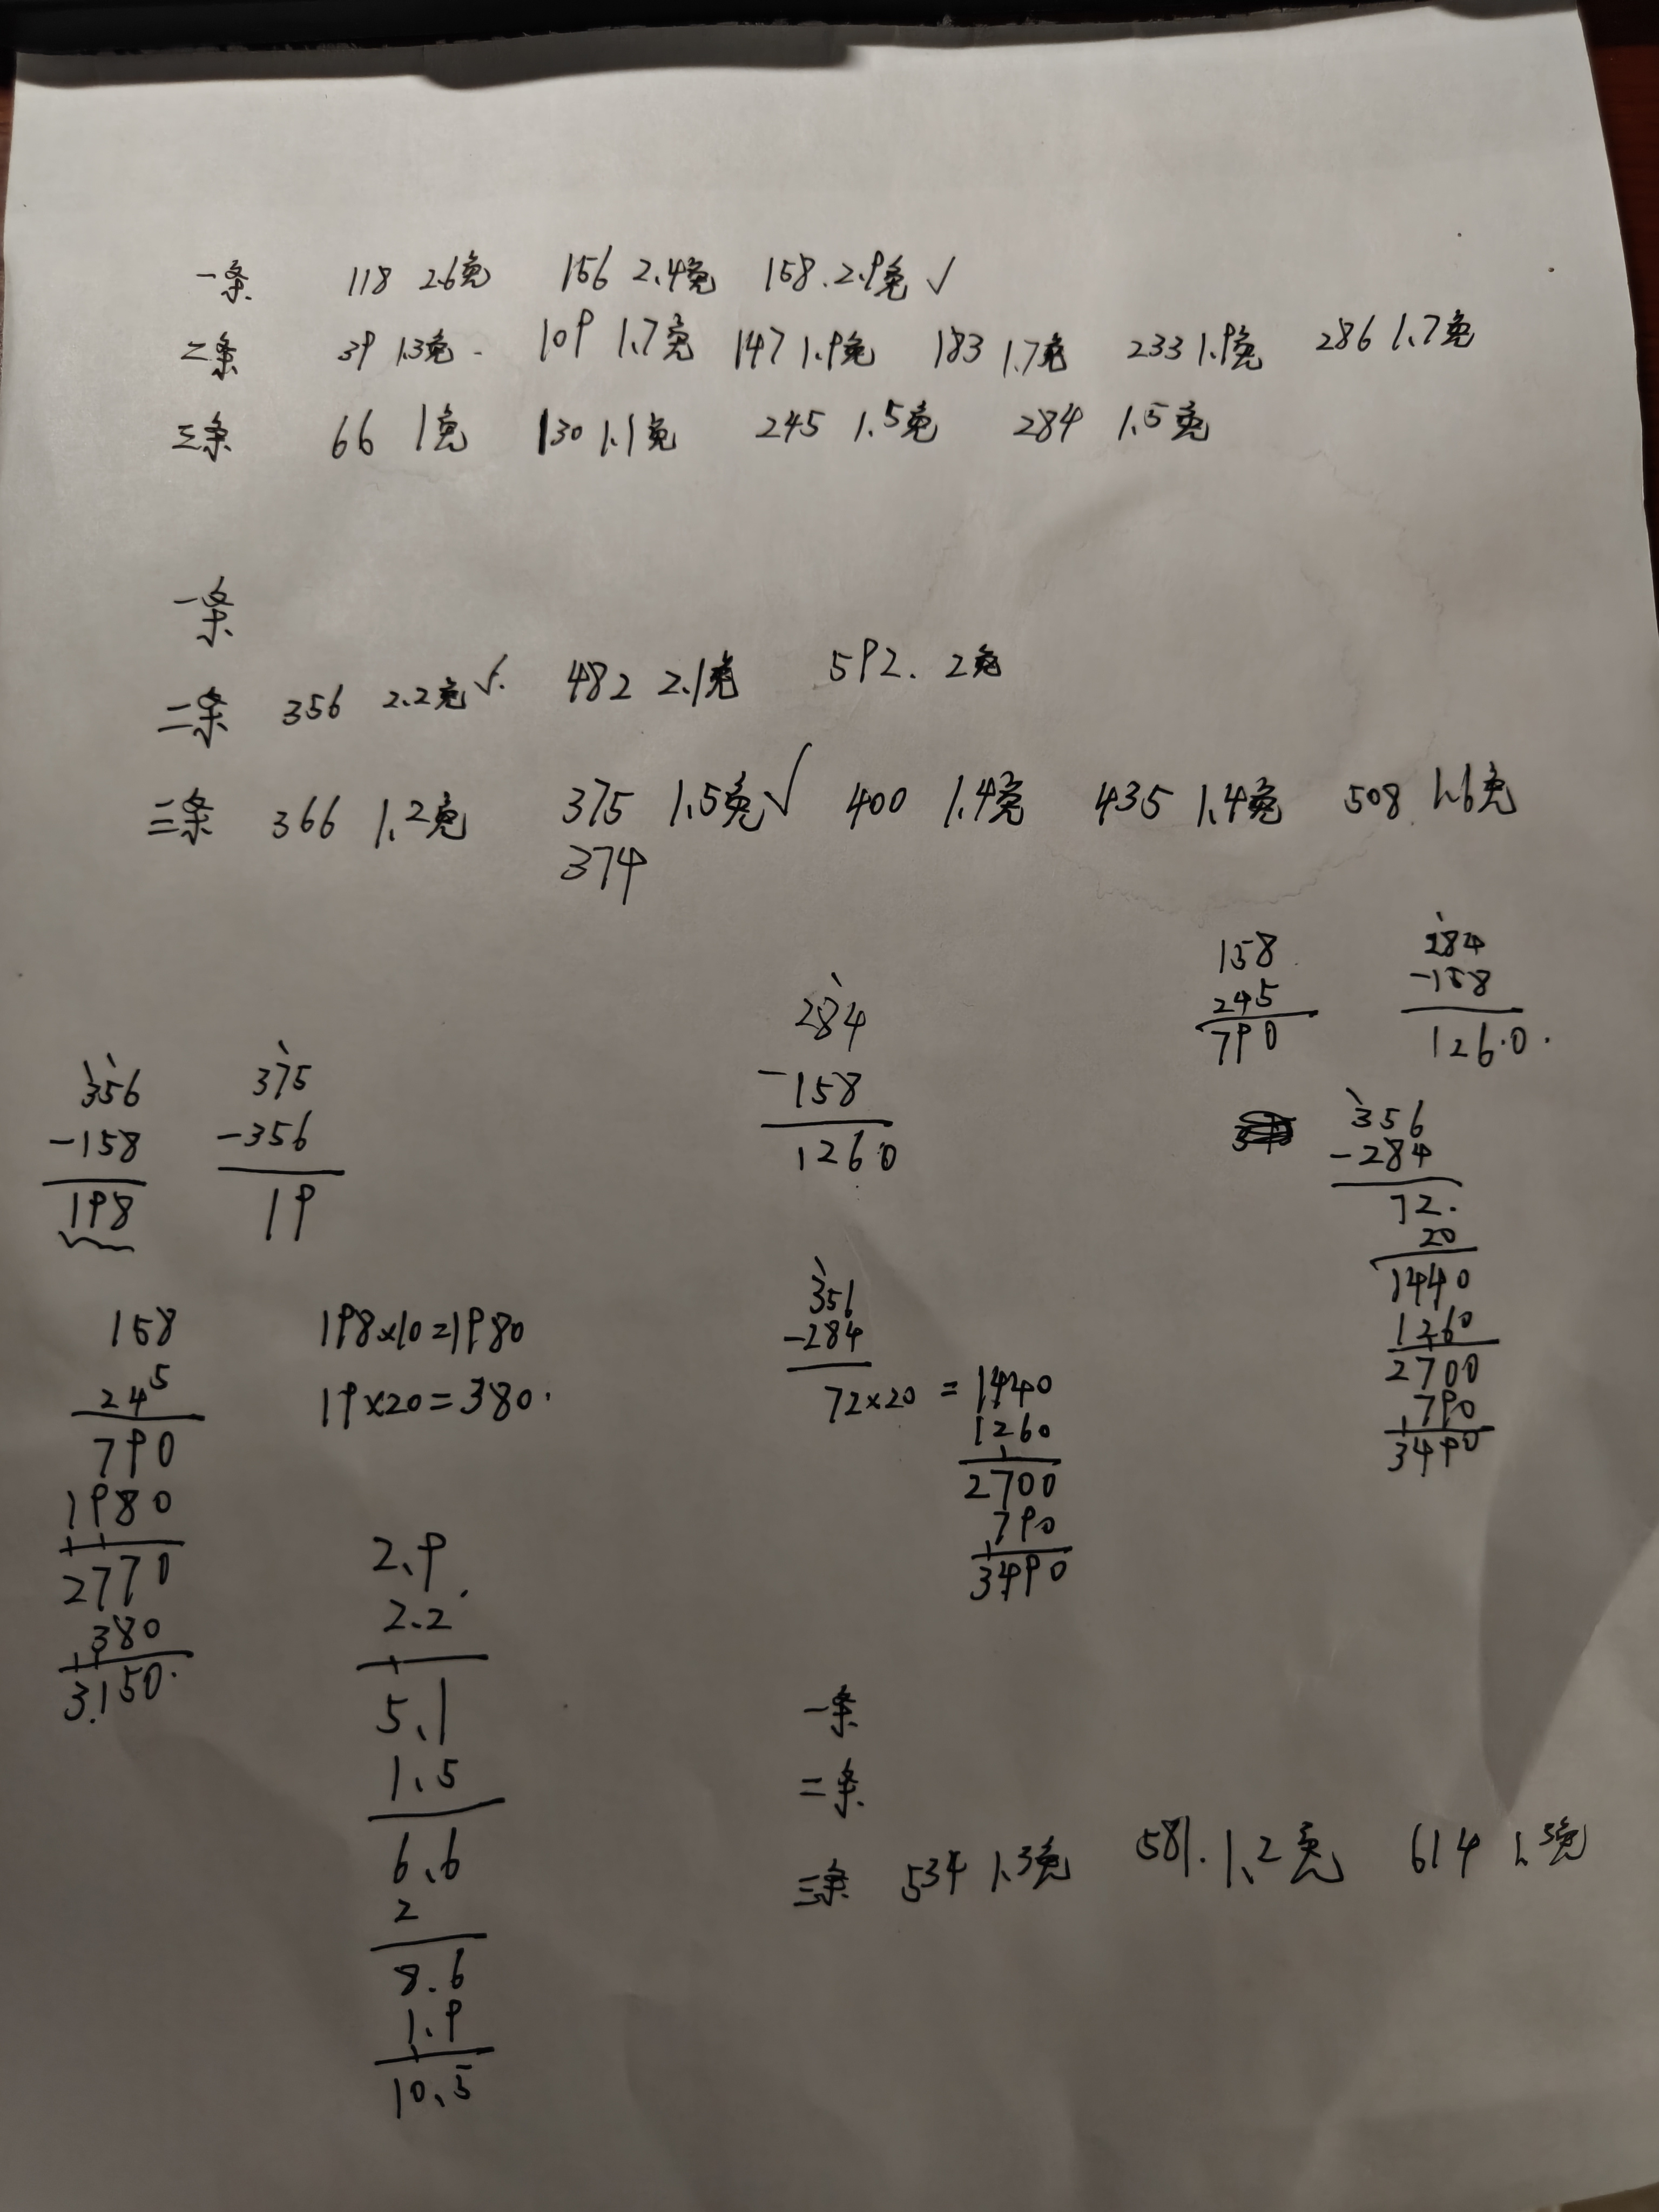 一条 118 2.6克 156 2.4克 158.2.9克 √
二条 39 1.3克 109 1.7克 147 1.9克 183 1.7克 233 1.9克 286 1.7克
三条 66 1克 130 1.1克 245 1.5克 284 1.5克
一条
二条 356 2.2克 √. 482 2.1克 592. 2克
三条 366 1.2克 375 1.5克 √ 400 1.4克 435 1.4克 508 1.6克
374
356
-158
198
375
-356
19
284
-158
1260
158
245
790
284
-158
126.0.
356
-284
72.
20
1440
1260
2700
790
3490
158
245
790
1980
2770
380
3150.
198×10=1980
19×20=380.
356
-284
72×20 = 1440
1260
2700
790
3490
2.9
2.2
5.1
1.5
6.6
2
8.6
1.9
10.5
一条
二条
三条 534 1.3克 581. 1.2克 614 1.3克